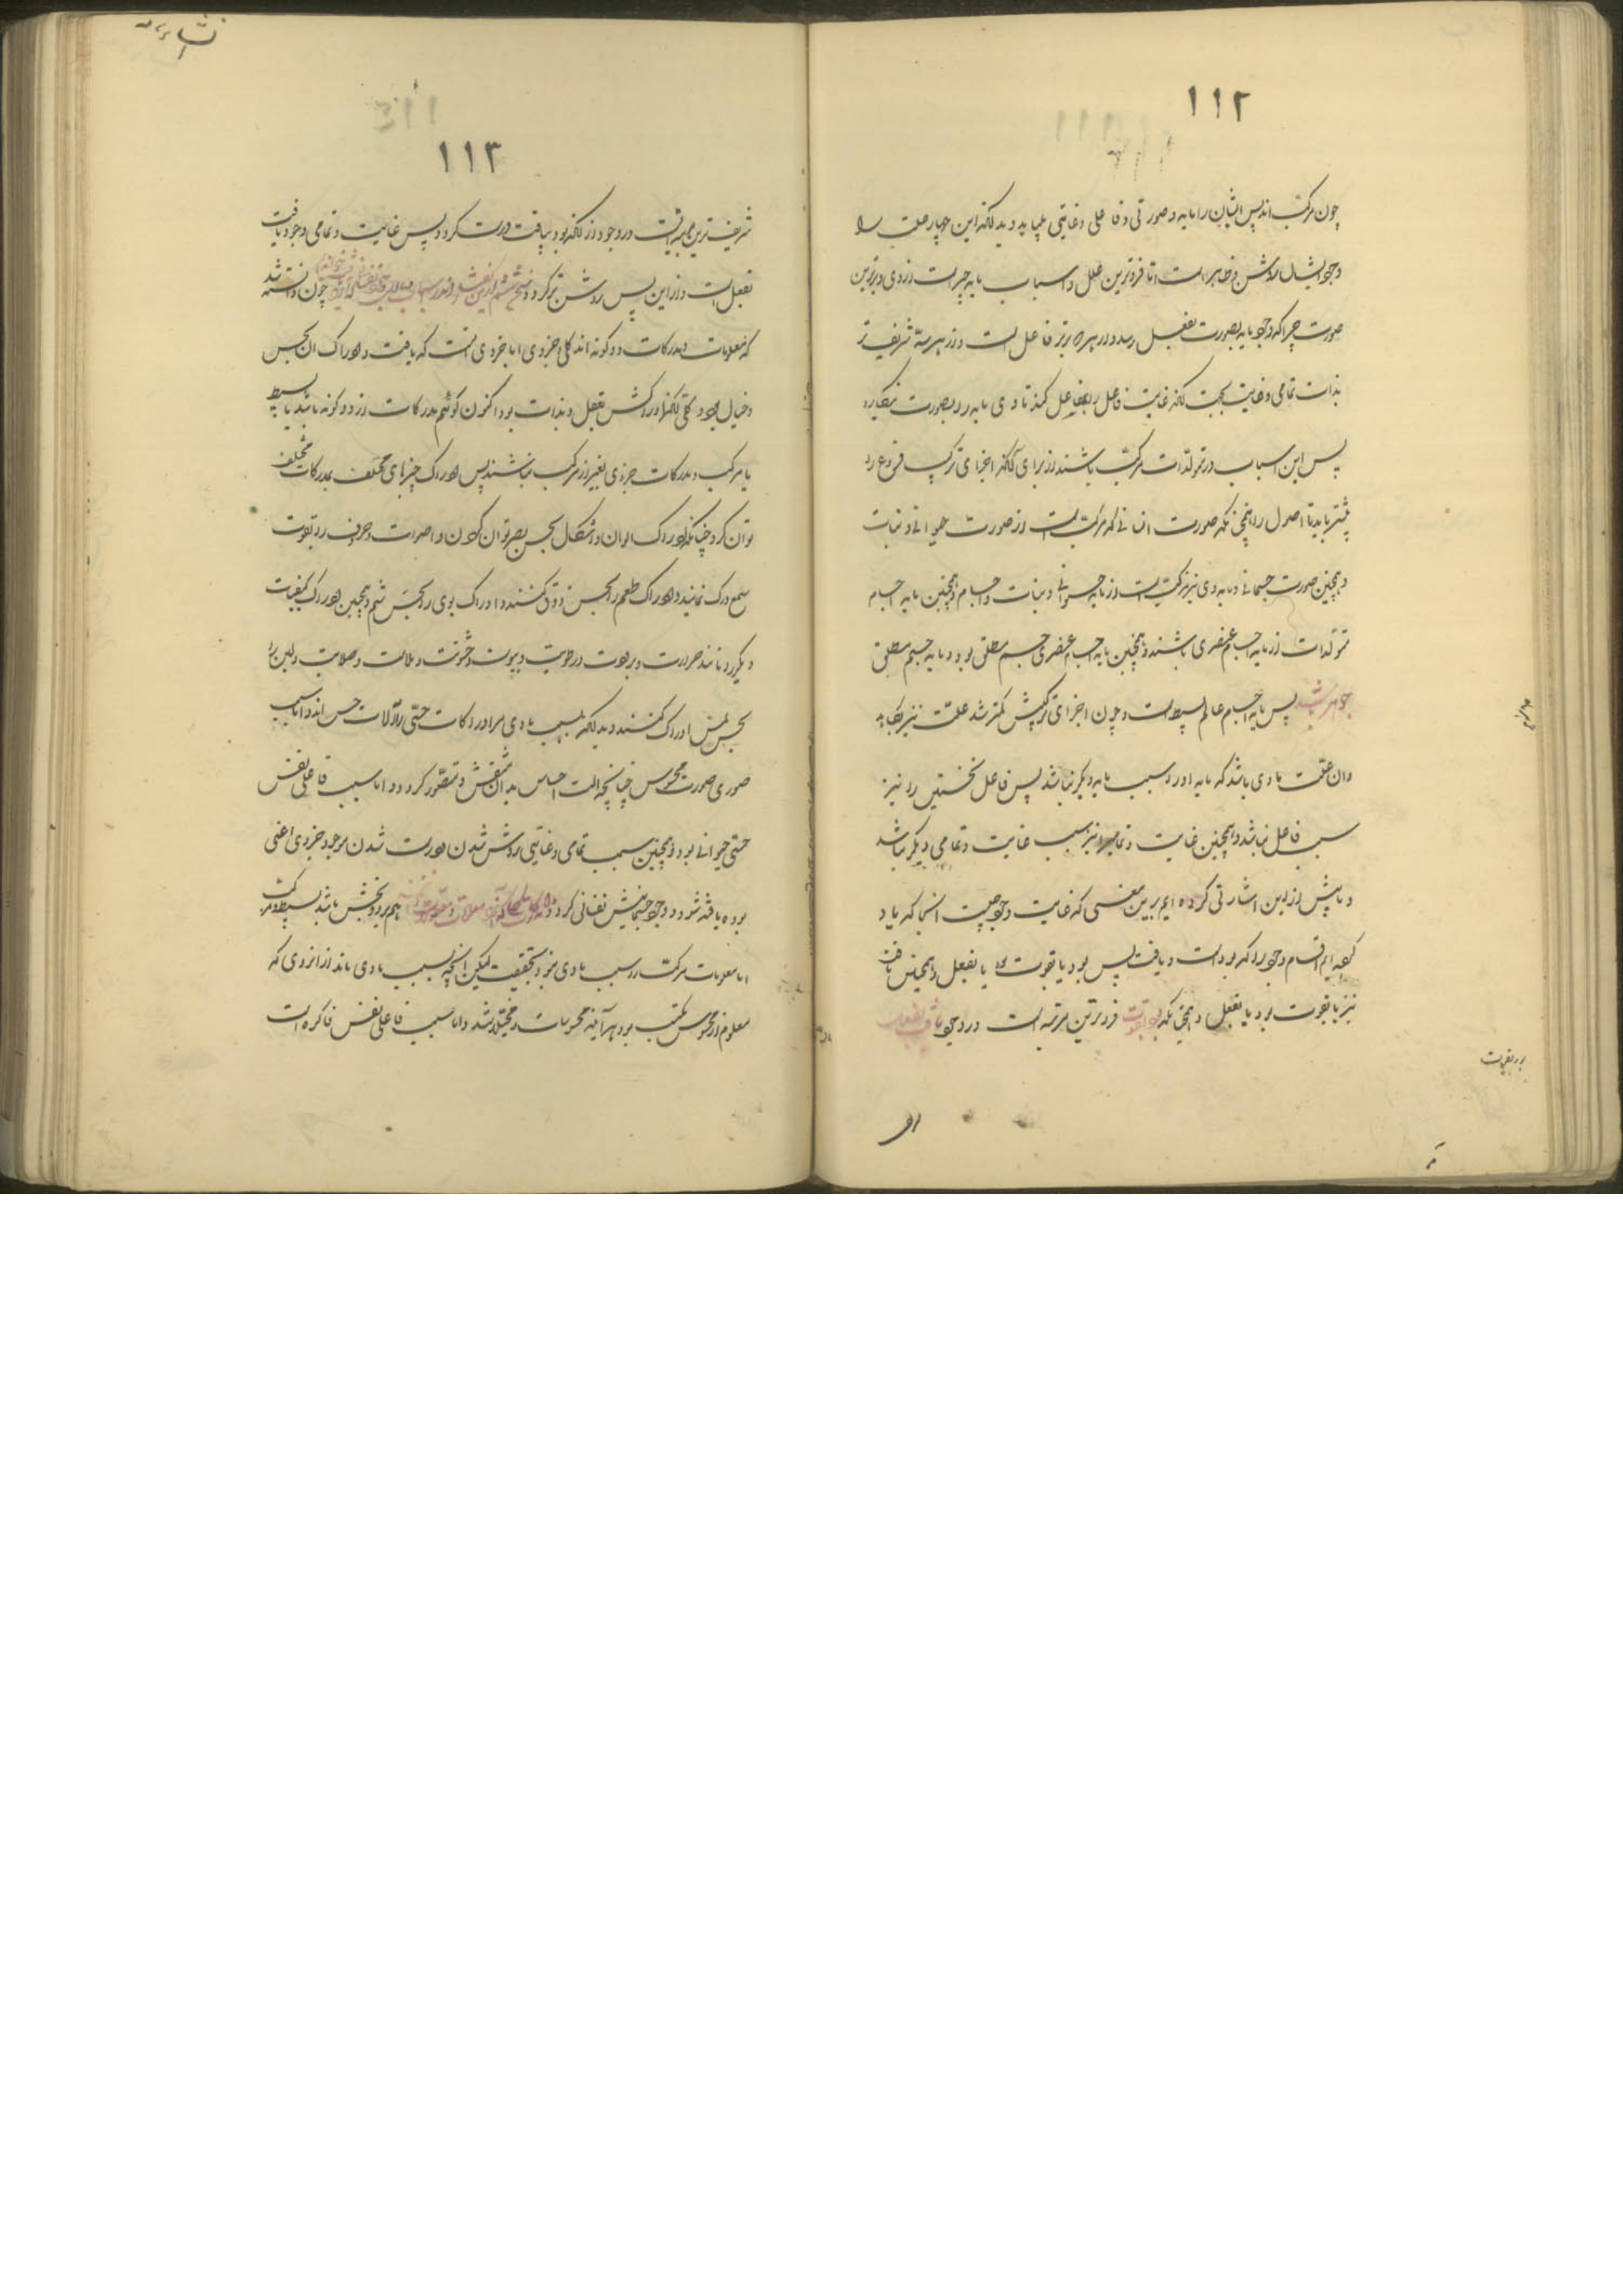 ۱۱۲
چون مرکب اند پس ایشان را مایه و صورتی و فاعلی و غایتی بباید و بدانکه این چهار علت را
وجود ایشان روشن و ظاهر است اما فروترین علل و اسباب مایه چیز است از وی و برترین
صورت چرا که وجود مایه بصورت بفعل رسد و برتر فاعل است و از هر سه شریف تر
بذات تمامی و غایت بحجت آنکه غایت فاعل را بفاعل کند تا وی مایه را بصورت بنگارد
پس این اسباب در متولدات مرکب باشند از برای آنکه اجزای ترکیب فروع را
بیشتر باید تا اصول را همچنانکه صورت انسانی که مرکب است از صورت حیوانی و نبات
و همچنین صورت جسمانی و مایه وی نیز مرکب است از مایه حیوانی و نبات و اجسام و همچنین مایه اجسام
متولدات از مایه اجسام عنصری باشند و همچنین مایه اجسام عنصری جسم مطلق بود و مایه جسم مطلق
جوهر باشد پس مایه اجسام عالم بسیط است و چون اجزای ترکیبش کمتر شد علت نیز بکاهد
و آن علت مادی باشد که مایه او را سبب مایه دیگر نباشد پس فاعل نخستین را نیز
سبب فاعل نباشد و همچنین غایت و تمامی را نیز سبب غایت و تمامی دیگر نباشد
و ما پیش از این اشارتی کرده ایم بر این معنی که غایت وجود چیست آنجا که یاد
کرده ایم اقسام وجود را که بودن است و یافت پس بود یا بقوت بود یا بفعل و همچنین یافت
نیز یا بقوت بود یا بفعل و همچنانکه بود بقوت فروترین مرتبه است در وجود یافت بفعل
۱۱۳
شریف ترین مرتبه است در وجود از آنکه بود بیافت درست گردد پس غایت و تمامی وجود یافت
بفعل است و از این پس روشن تر گردد چون دانسته شد
که معلومات و مدرکات دو گونه اند کلی و جزوی اما جزوی آنست که یافت و ادراک آن بحس
و خیال بود و کلی آنکه ادراکش بعقل و بذات بود اکنون گوئیم مدرکات از دو گونه باشد یا بسیط
یا مرکب و مدرکات جزوی بغیر از مرکب نباشند پس ادراک چیزهای مختلف بمدرکات مختلف
توان کرد چنانکه ادراک الوان و اشکال بحس بصر توان کردن و اصوات و حروف را بقوت
سمع درک نمایند و ادراک طعم را بحس ذوق کنند و ادراک بوی را بحس شم و همچنین ادراک کیفیات
دیگر را مانند حرارت و برودت و رطوبت و یبوست و خشونت و ملاست و صلابت و لین را
بحس لمس ادراک کنند و بدانکه سبب مادی مر ادراکات حسی را آلات حس اند و اما سبب
صوری صورت محسوس چنانچه آلت احساس بدان منقش و متصور گردد و اما سبب فاعلی نفس
حسی حیوانی بود و همچنین سبب تمامی و غایتی روشن شدن و درست شدن موجود جزوی اعنی
بوده یافته شود و وجود جسمانیش نفسانی گردد هم بر دو بخش باشد بسیط و مرکب
اما معلومات مرکب را سبب مادی نبود بحقیقت لیکن آنچه بسبب مادی ماند از آنروی که
معلوم از محسوس مکتسب بود هر آینه محسوسات و مخیلات باشد و اما سبب فاعلی نفس ذاکره است